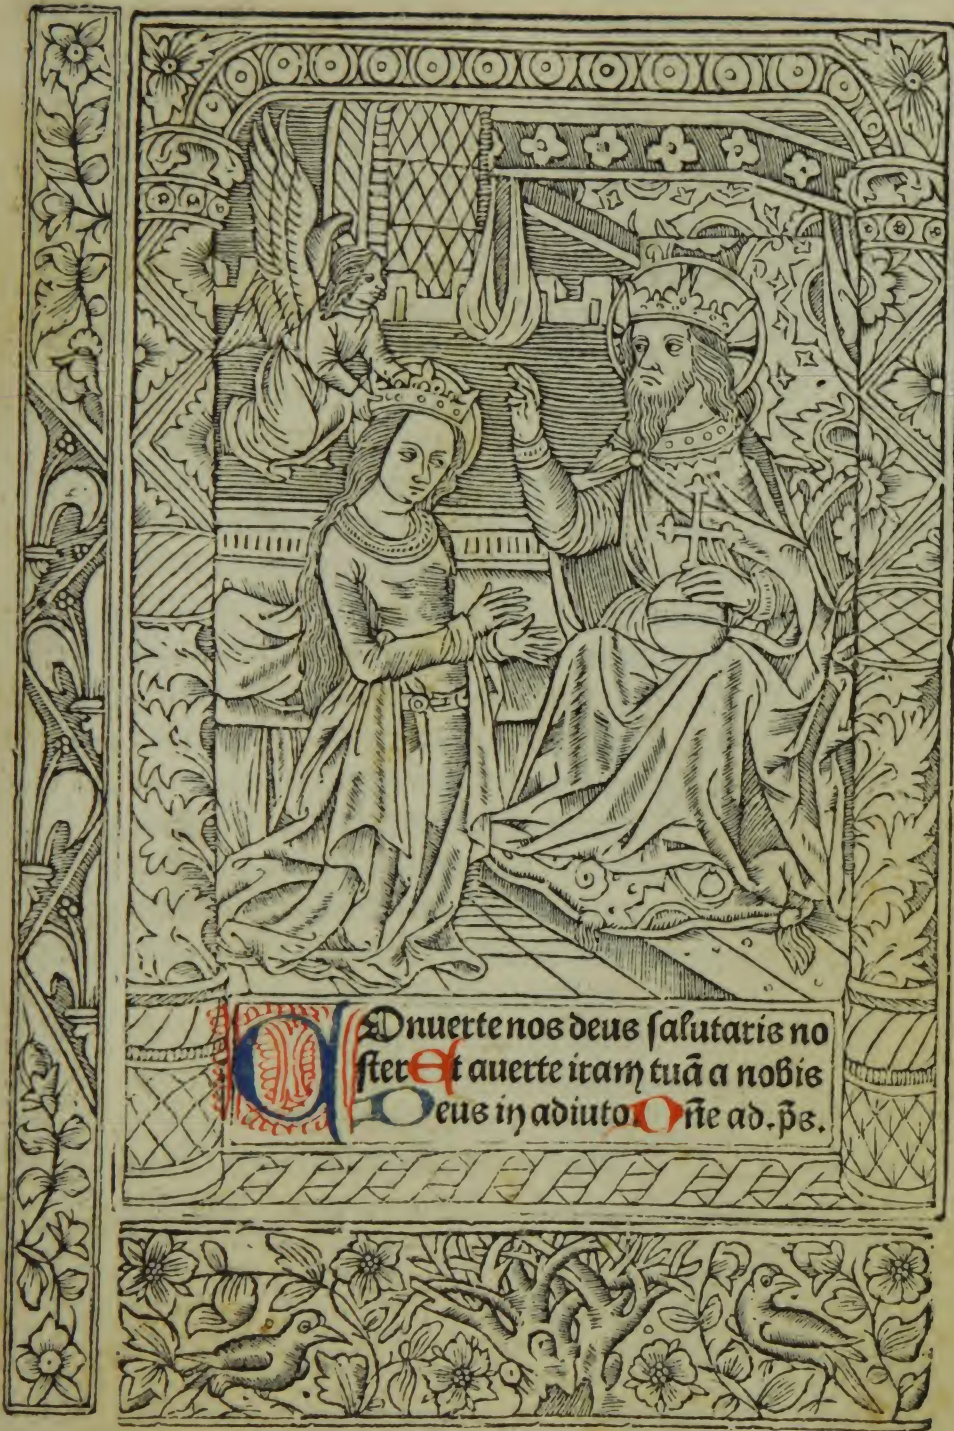 COnuerte nos deus ſalutaris no
ſter Et auerte iram tuã a nobis
Deus in adiuto. Dñe ad. p̃s.